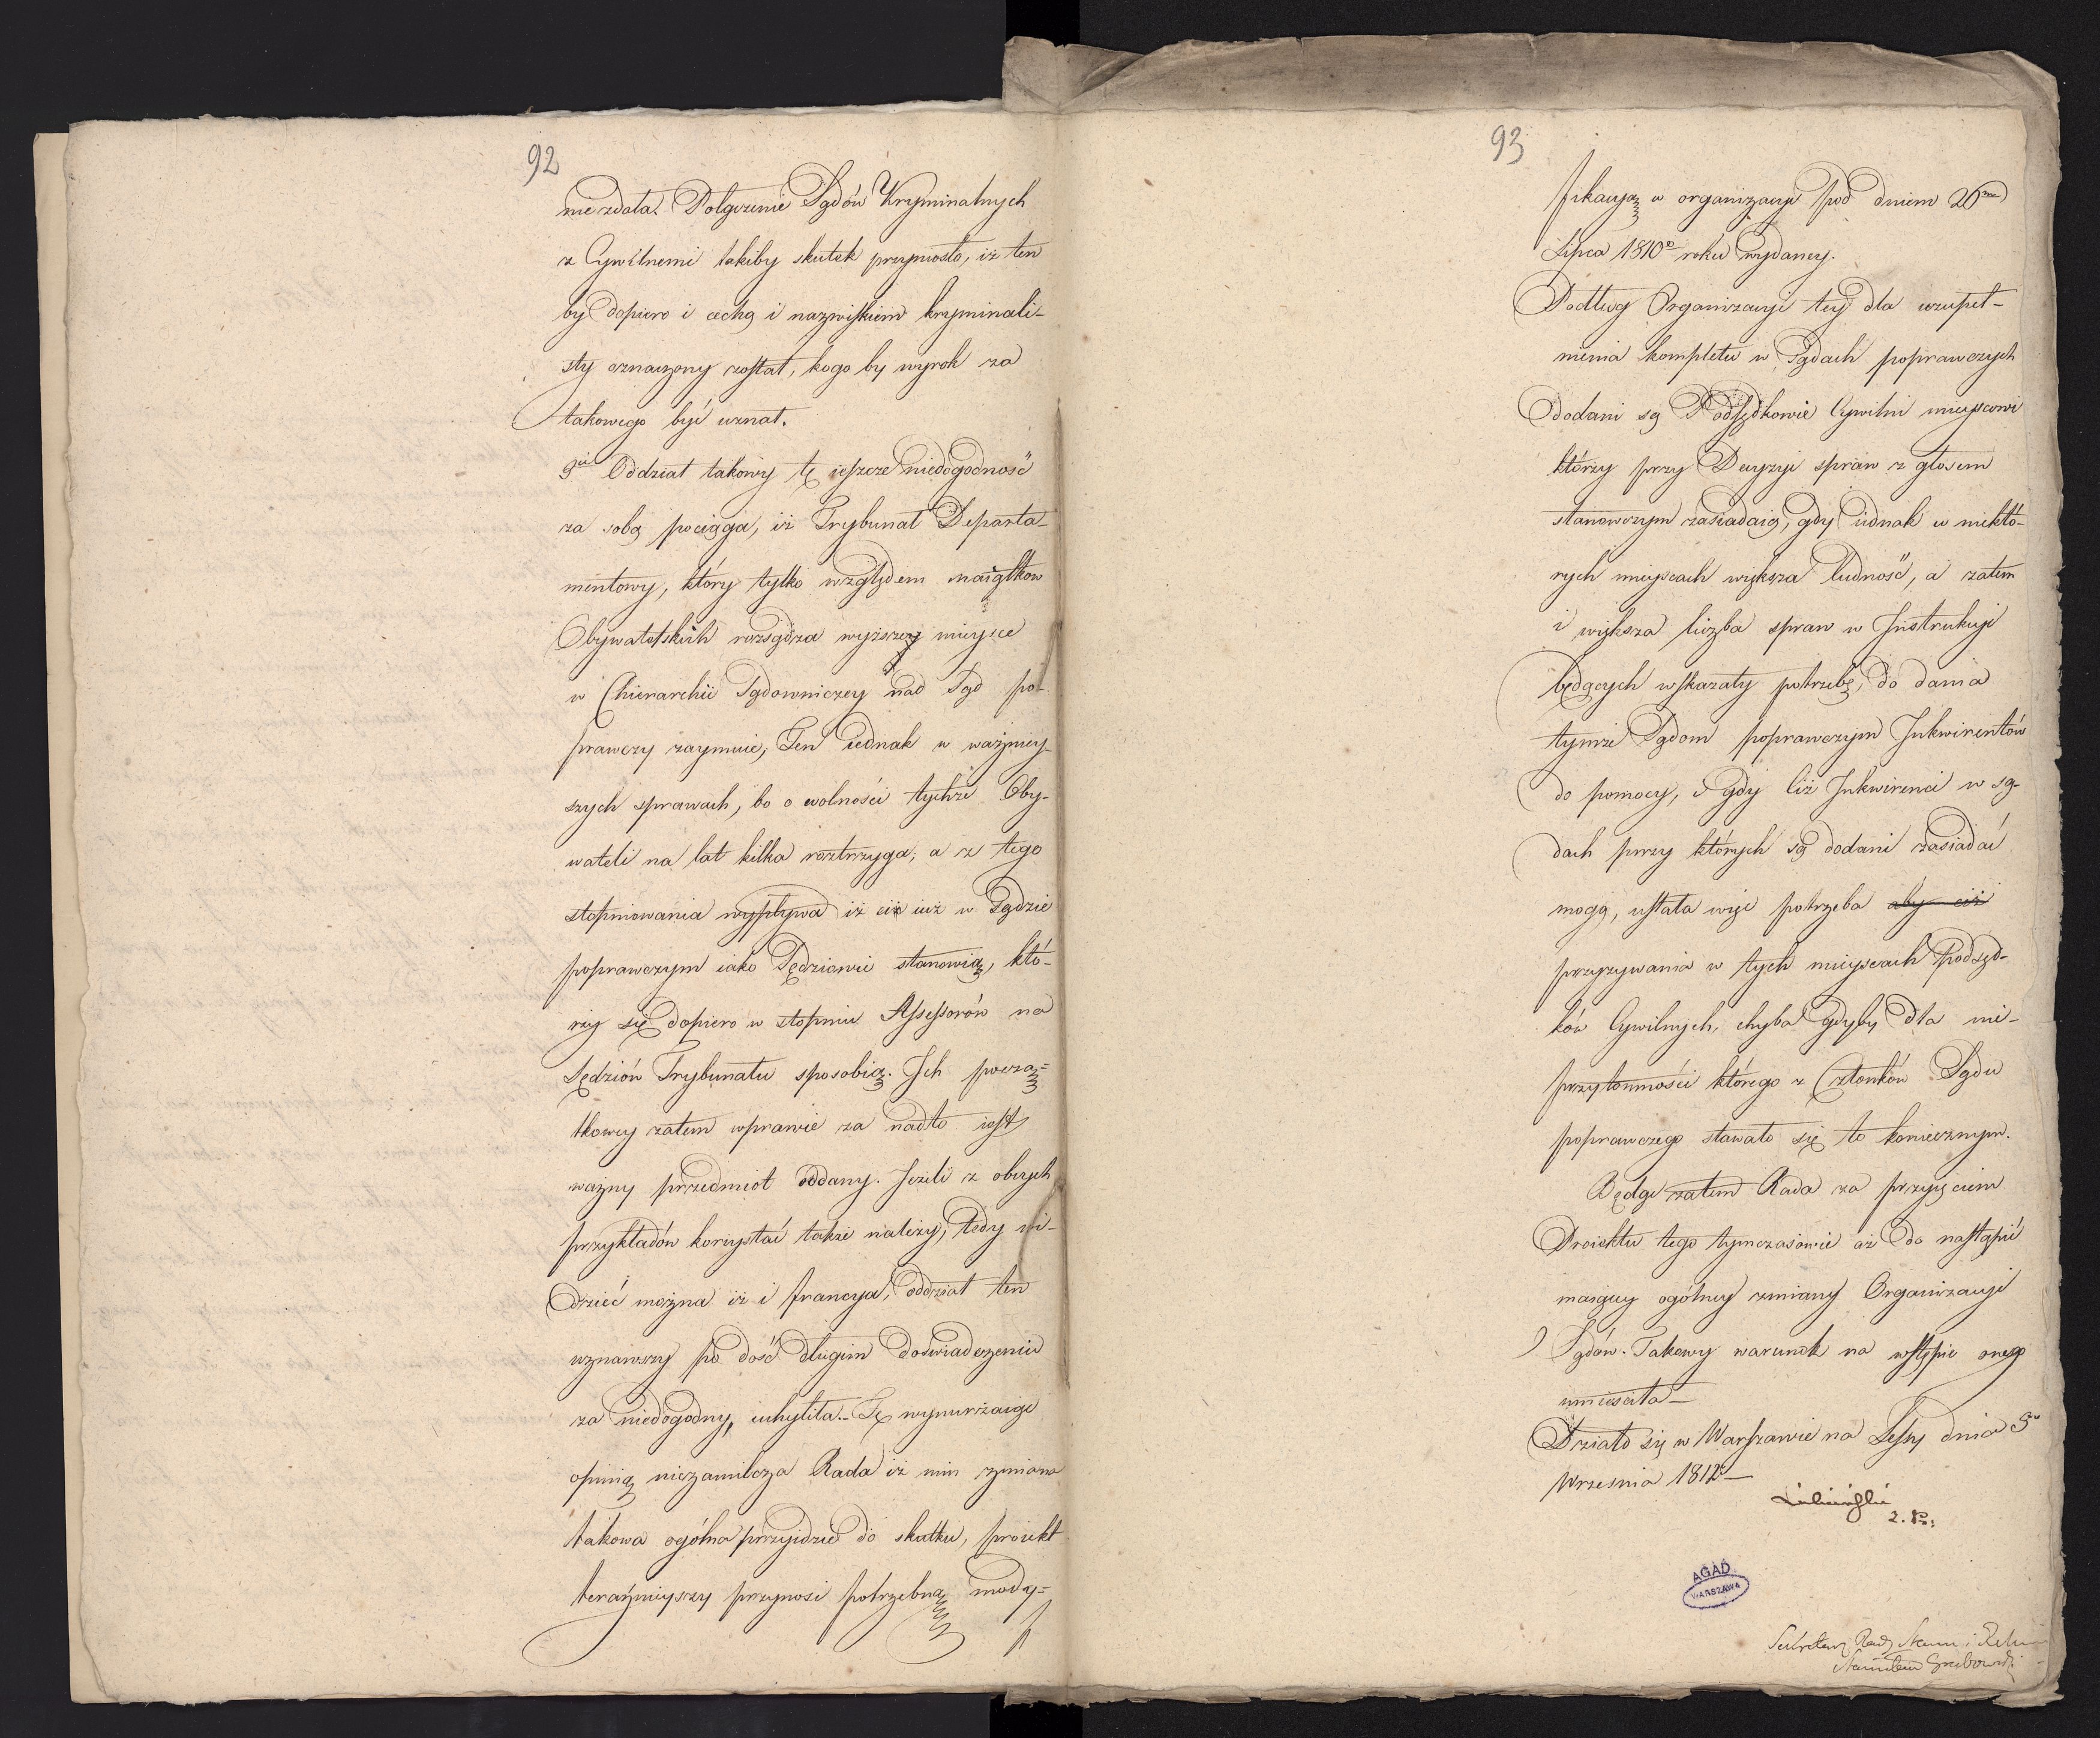 92
nie zdała. Połączenie Sądów Kryminalnych
z Cywilnemi takiby skutek przyniosło, iż ten
by dopiero i cechą i nazwiskiem kryminali-
sty oznaczony został, kogo by wyrok za
takowego być uznał.
3cie Oddział takowy tę ieszcze niedogodność
za sobą pociąga, iż Trybunał Departa-
mentowy, który tylko względem maiątków
Obywatelskich rozsądza wyższey mieysce
w Chierarchii Sądowniczey nad Sąd po-
prawczy zaymuie, Ten iednak w ważniey-
szych sprawach, bo o wolności tychże Oby-
wateli na lat kilka roztrzyga, a z tego
stopniowania wypływa iż ciż iuż w Sądzie
poprawczym iako Sędziowie stanowią, któ-
rzy się dopiero w stopniu Assessorów na
Sędziów Trybunału sposobią. Ich począ=
tkowey zatem wprawie za nadto iest
ważny przedmiot oddany. Jeżeli z obcych
przykładów korzystać także należy, tedy wi-
dzieć można iż i francya, oddział ten
uznawszy po dość długim doświadczeniu
za niedogodny, uchyliła. Tę wynurzaiąc
opinią niezamilcza Rada iż nim zmiana
takowa ogólna przyidzie do skutku, proiekt
teraźnieyszy przynosi potrzebną mody=
93
fikacyą w organizacyi pod dniem 26mo
Lipca 1810o roku wydaney.
Podług Organizacyi tey dla uzupeł-
nienia kompletu w Sądach poprawczych
dodani są Podsędkowie Cywilni mieyscowi
którzy przy Decyzyi spraw z głosem
stanowczym zasiadaią, gdy iednak w niektó-
rych mieyscach większa ludność, a zatem
i większa liczba spraw w Instrukcyi
będących wskazały potrzebę, do dania
tymże Sądom poprawczym Inkwirentów
do pomocy, i gdy Ciż Inkwirenci w są-
dach przy których są dodani zasiadać
mogą, ustała więc potrzeba aby ciż
przyzywania w tych mieyscach Podsęd-
ków Cywilnych, chyba gdyby dla nie-
przytomności którego z Członków Sądu
poprawczego stawało się to koniecznym.
Będąc zatem Rada za przyięciem
Proiektu tego tymczasowie aż do nastąpić
maiącey ogólney zmiany Organizacyi
Sądów. Takowy warunek na wstępie onego
umieściła
Działo się w Warszawie na Sessyi dnia 3o
Września 1812o
AGAD
WARSZAWA
Sekretarz Rady Stanu i
Stanisław Grabowski